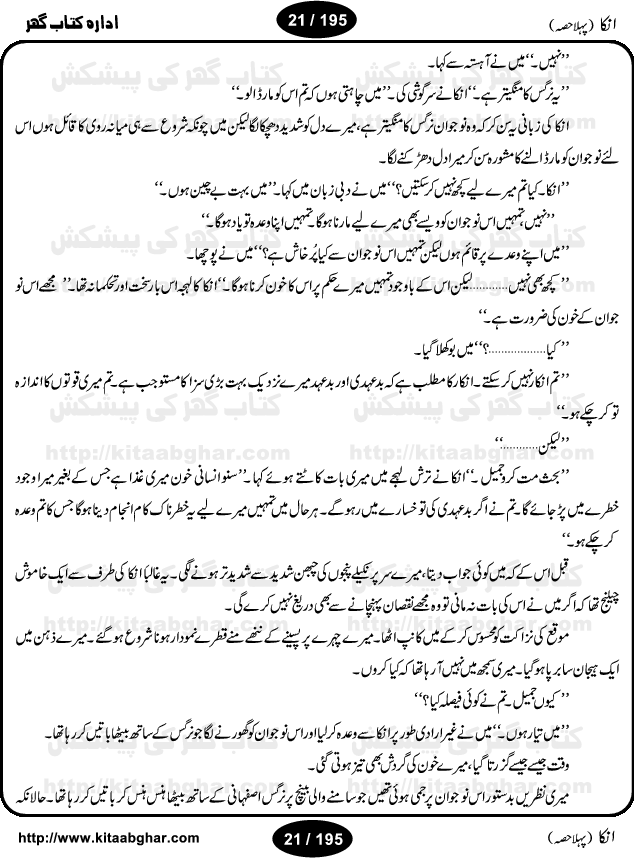 انکا (پہلا حصہ)
21 / 195
ادارہ کتاب گھر
’’نہیں۔‘‘ میں نے آہستہ سے کہا۔
’’یہ نرگس کا منگیتر ہے۔‘‘ انکا نے سرگوشی کی۔ ’’میں چاہتی ہوں کہ تم اس کو مار ڈالو۔‘‘
انکا کی زبانی یہ سن کر کہ وہ نوجوان نرگس کا منگیتر ہے، میرے دل کو شدید دھچکا لگا لیکن میں چونکہ شروع سے ہی میانہ روی کا قائل ہوں اس
لئے نوجوان کو مار ڈالنے کا مشورہ سن کر میرا دل دھڑکنے لگا۔
’’انکا۔ کیا تم میرے لیے کچھ نہیں کر سکتیں؟‘‘ میں نے دبی زبان میں کہا۔ ’’میں بہت بے چین ہوں۔‘‘
’’نہیں، تمہیں اس نوجوان کو ویسے بھی میرے لیے مارنا ہوگا۔ تمہیں اپنا وعدہ تو یاد ہوگا۔‘‘
’’میں اپنے وعدے پر قائم ہوں لیکن تمہیں اس نوجوان سے کیا پُر خاش ہے؟‘‘ میں نے پوچھا۔
’’کچھ بھی نہیں............لیکن اس کے باوجود تمہیں میرے حکم پر اس کا خون کرنا ہوگا۔‘‘ انکا کا لہجہ اس بار سخت اور تحکمانہ تھا۔ ’’مجھے اس نو
جوان کے خون کی ضرورت ہے۔‘‘
’’کیا..................؟‘‘ میں بوکھلا گیا۔
’’تم انکار نہیں کر سکتے۔ انکار کا مطلب ہے کہ بدعہدی اور بدعہد میرے نزدیک بہت بڑی سزا کا مستوجب ہے۔ تم میری قوتوں کا اندازہ
تو کر چکے ہو۔‘‘
’’لیکن...........‘‘
’’بحث مت کرو جمیل۔‘‘ انکا نے ترش لہجے میں میری بات کاٹتے ہوئے کہا۔ ’’سنو انسانی خون میری غذا ہے جس کے بغیر میرا وجود
خطرے میں پڑ جائے گا۔ تم نے اگر بدعہدی کی تو خسارے میں رہو گے۔ ہر حال میں تمہیں میرے لیے یہ خطرناک کام انجام دینا ہوگا جس کا تم وعدہ
کر چکے ہو۔‘‘
قبل اس کے کہ میں کوئی جواب دیتا، میرے سر پر نکیلے پنجوں کی چبھن شدید سے شدید تر ہونے لگی۔ یہ غالباً انکا کی طرف سے ایک خاموش
چیلنج تھا کہ اگر میں نے اس کی بات نہ مانی تو وہ مجھے نقصان پہنچانے سے بھی دریغ نہیں کرے گی۔
موقع کی نزاکت کو محسوس کر کے میں کانپ اٹھا۔ میرے چہرے پر پسینے کے ننھے منے قطرے نمودار ہونا شروع ہو گئے۔ میرے ذہن میں
ایک ہیجان سا برپا ہو گیا۔ میری سمجھ میں نہیں آ رہا تھا کہ کیا کروں۔
’’کیوں جمیل۔ تم نے کوئی فیصلہ کیا؟‘‘
’’میں تیار ہوں۔‘‘ میں نے غیر ارادی طور پر انکا سے وعدہ کر لیا اور اس نوجوان کو گھورنے لگا جو نرگس کے ساتھ بیٹھا باتیں کر رہا تھا۔
وقت جیسے جیسے گزرتا گیا، میرے خون کی گردش بھی تیز ہوتی گئی۔
میری نظریں بدستور اس نوجوان پر جمی ہوئی تھیں جو سامنے والی بینچ پر نرگس اصفہانی کے ساتھ بیٹھا ہنس ہنس کر باتیں کر رہا تھا۔ حالانکہ
انکا (پہلا حصہ)
21 / 195
http://www.kitaabghar.com